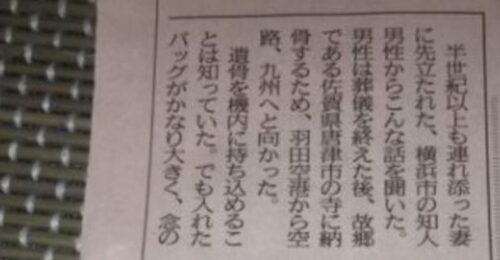 半世紀以上も連れ添った妻
に先立たれた、横浜市の知人
男性からこんな話を聞いた。
男性は葬儀を終えた後、故郷
である佐賀県唐津市の寺に納
骨するため、羽田空港から空
路、九州へと向かった。
遺骨を機内に持ち込めるこ
とは知っていた。でも入れた
バッグがかなり大きく、念の